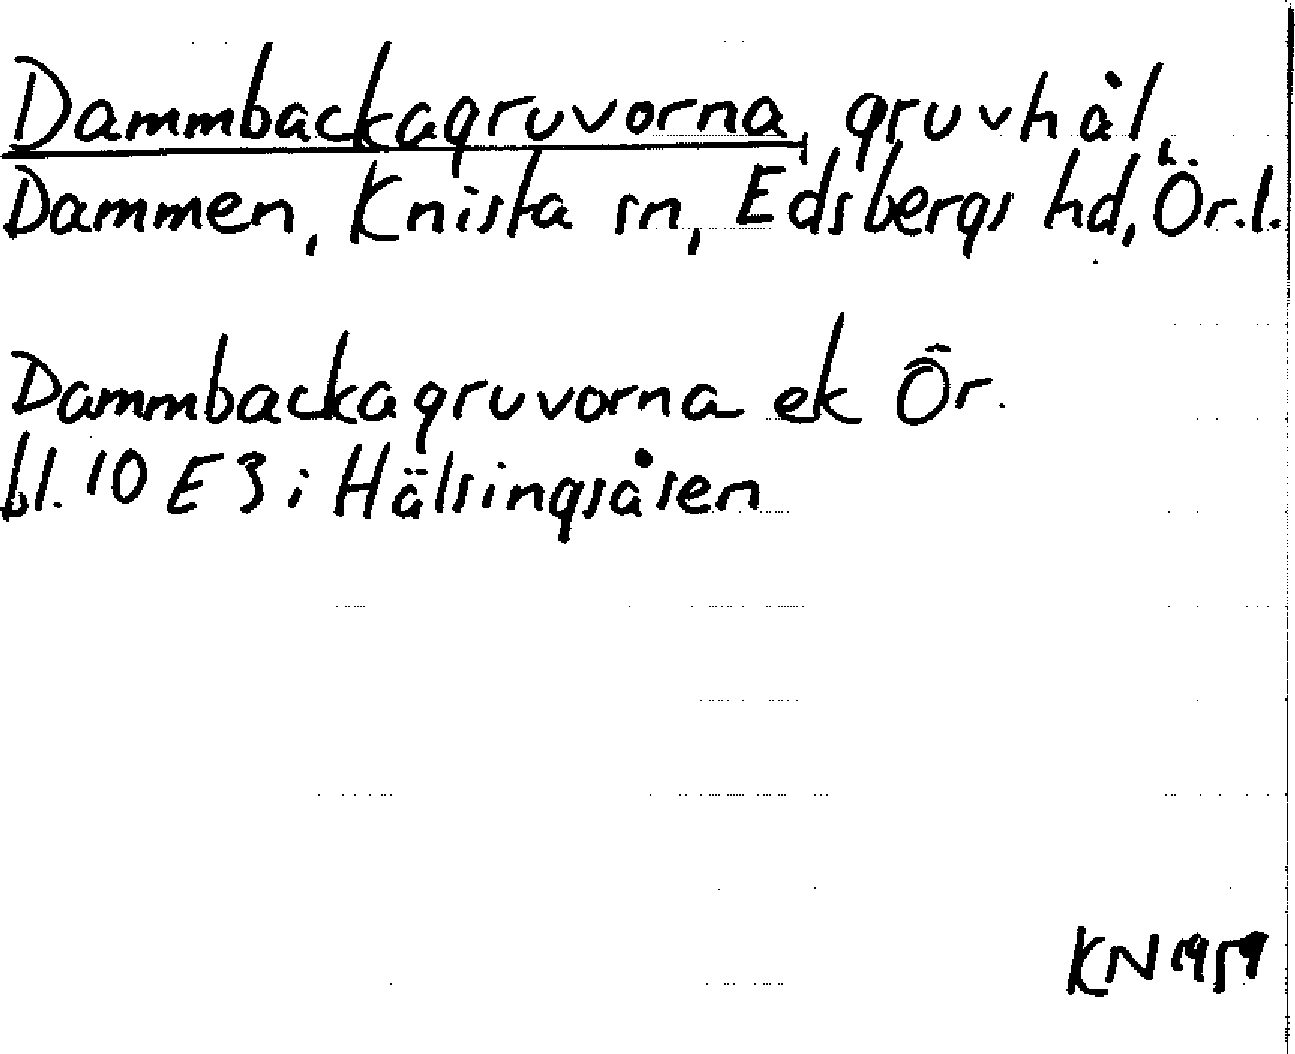 Dammbackagruvorna, gruvhål,
Dammen, Knista sn, Edsbergs hd, Ör.l.
Dammbackagruvorna ek Ör.
bl. 10 E3 i Hälsingsåsen
KN 1959